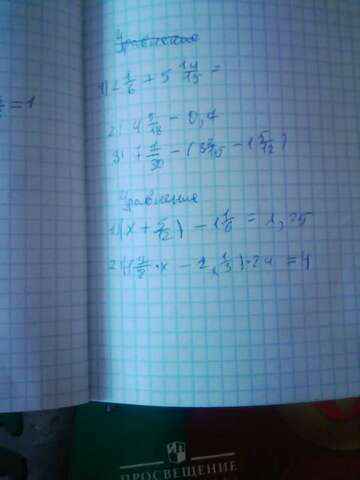 =1
Уравнение
1) 2 1/6 + 5 14/15 =
2) 4 5/18 - 0,7
3) 7 1/30 - (3 2/15 - 1 5/12)
Уравнение
1) (x + 5/12) - 1 1/6 = 1,25
- 1 1/3) · 24 = 4
ИП
ПРОСВЕЩЕНИЕ